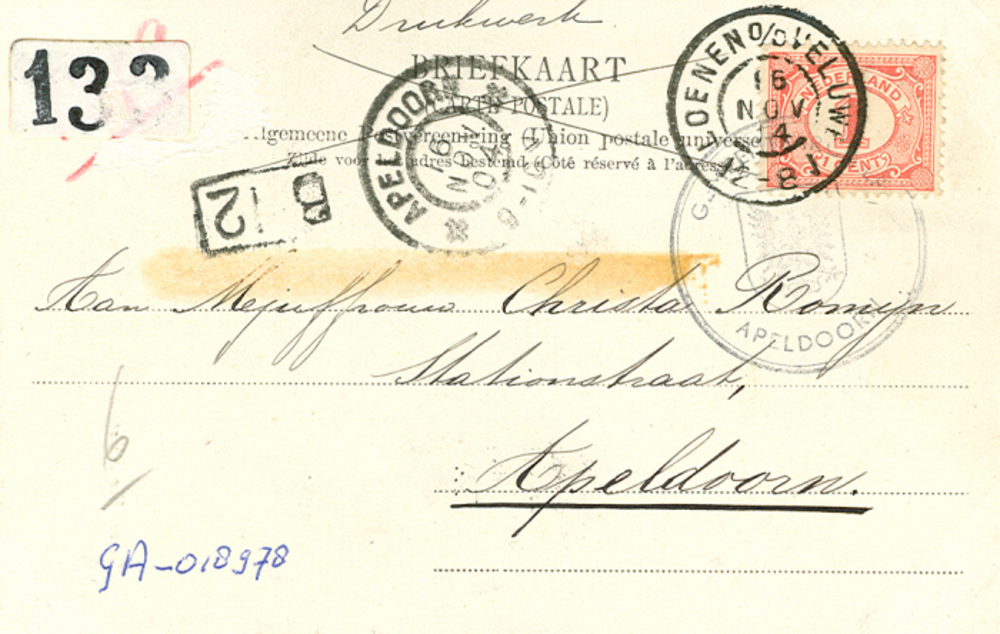 Drukwerk
BRIEFKAART
(CARTE POSTALE)
Algemeene Postvereeniging (Union postale universelle)
Zijde voor het adres bestemd (Côté réservé à l'adresse)
133
APELDOORN
16 NOV 04
HOENEN O/D VELUWE
16 NOV 04
12-8
NEDERLAND
1 CENT
B
12
APELDOORN
Aan Mejuffrouw Christa Romijn
Stationstraat,
Apeldoorn.
6
GA-018978